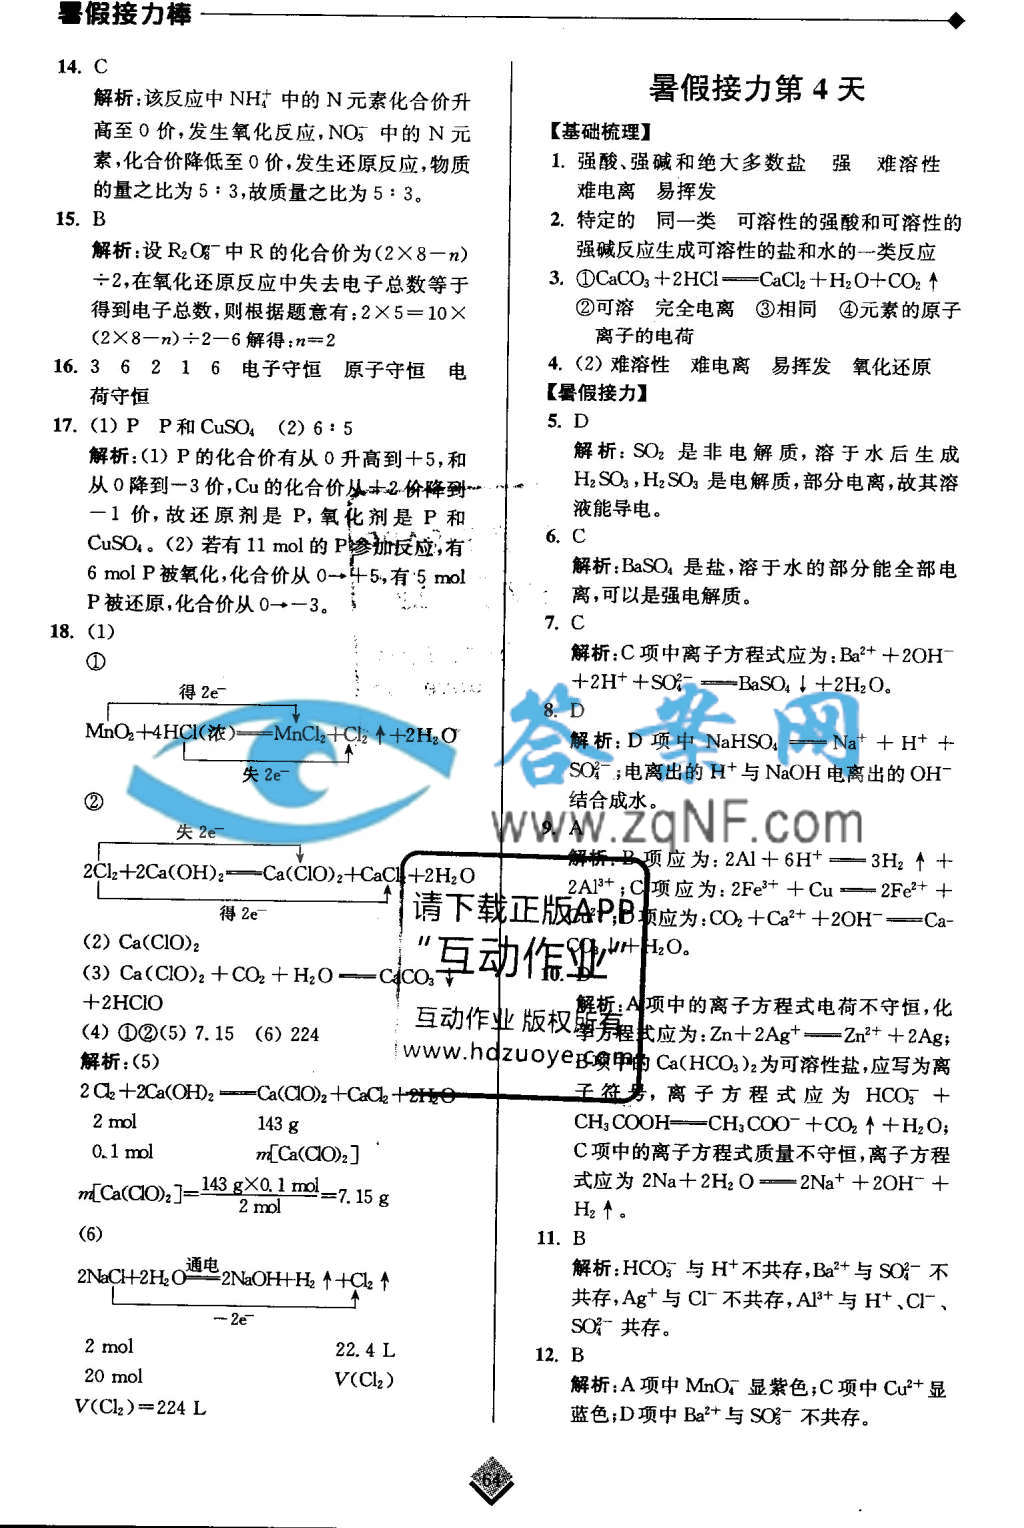 暑假接力棒
14. C
解析:该反应中 NH₄⁺ 中的 N 元素化合价升
高至 0 价,发生氧化反应,NO₃⁻ 中的 N 元
素,化合价降低至 0 价,发生还原反应,物质
的量之比为 5∶3,故质量之比为 5∶3。
15. B
解析:设 R₂O₈ⁿ⁻ 中 R 的化合价为(2×8−n)
÷2,在氧化还原反应中失去电子总数等于
得到电子总数,则根据题意有:2×5=10×
(2×8−n)÷2−6 解得:n=2
16. 3 6 2 1 6 电子守恒 原子守恒 电
荷守恒
17. (1) P P 和 CuSO₄ (2) 6∶5
解析:(1) P 的化合价有从 0 升高到+5,和
从 0 降到−3 价,Cu 的化合价从+2 价降到
−1 价,故还原剂是 P,氧化剂是 P 和
CuSO₄。(2) 若有 11 mol 的 P 参加反应,有
6 mol P 被氧化,化合价从 0→+5,有 5 mol
P 被还原,化合价从 0→−3。
18. (1)
①
得 2e⁻
MnO₂+4HCl(浓)══MnCl₂+Cl₂↑+2H₂O
失 2e⁻
②
失 2e⁻
2Cl₂+2Ca(OH)₂══Ca(ClO)₂+CaCl₂+2H₂O
得 2e⁻
(2) Ca(ClO)₂
(3) Ca(ClO)₂+CO₂+H₂O══CaCO₃↓
+2HClO
(4) ①②(5) 7.15 (6) 224
解析:(5)
2Cl₂+2Ca(OH)₂══Ca(ClO)₂+CaCl₂+2H₂O
2 mol 143 g
0.1 mol m[Ca(ClO)₂]
m[Ca(ClO)₂]=143 g×0.1 mol/2 mol=7.15 g
(6)
2NaCl+2H₂O 通电══ 2NaOH+H₂↑+Cl₂↑
−2e⁻
2 mol 22.4 L
20 mol V(Cl₂)
V(Cl₂)=224 L
暑假接力第 4 天
【基础梳理】
1. 强酸、强碱和绝大多数盐 强 难溶性
难电离 易挥发
2. 特定的 同一类 可溶性的强酸和可溶性的
强碱反应生成可溶性的盐和水的一类反应
3. ①CaCO₃+2HCl══CaCl₂+H₂O+CO₂↑
②可溶 完全电离 ③相同 ④元素的原子
离子的电荷
4. (2) 难溶性 难电离 易挥发 氧化还原
【暑假接力】
5. D
解析: SO₂ 是非电解质,溶于水后生成
H₂SO₃,H₂SO₃ 是电解质,部分电离,故其溶
液能导电。
6. C
解析:BaSO₄ 是盐,溶于水的部分能全部电
离,可以是强电解质。
7. C
解析:C 项中离子方程式应为:Ba²⁺+2OH⁻
+2H⁺+SO₄²⁻══BaSO₄↓+2H₂O。
8. D
解析: D 项中 NaHSO₄══Na⁺+H⁺+
SO₄²⁻;电离出的 H⁺与 NaOH 电离出的 OH⁻
结合成水。
9. A
解析:B 项应为: 2Al+6H⁺══3H₂↑+
2Al³⁺;C 项应为: 2Fe³⁺+Cu══2Fe²⁺+
Cu²⁺;D 项应为:CO₂+Ca²⁺+2OH⁻══Ca-
CO₃↓+H₂O。
10. D
解析:A 项中的离子方程式电荷不守恒,化
学方程式应为:Zn+2Ag⁺══Zn²⁺+2Ag;
B 项中的 Ca(HCO₃)₂为可溶性盐,应写为离
子符号,离子方程式应为 HCO₃⁻+
CH₃COOH══CH₃COO⁻+CO₂↑+H₂O;
C 项中的离子方程式质量不守恒,离子方程
式应为 2Na+2H₂O══2Na⁺+2OH⁻+
H₂↑。
11. B
解析:HCO₃⁻ 与 H⁺不共存,Ba²⁺与 SO₄²⁻ 不
共存,Ag⁺与 Cl⁻不共存,Al³⁺与 H⁺、Cl⁻、
SO₄²⁻ 共存。
12. B
解析:A 项中 MnO₄⁻ 显紫色;C 项中 Cu²⁺显
蓝色;D 项中 Ba²⁺与 SO₃²⁻ 不共存。
答案网
www.zqNF.com
请下载正版APP
“互动作业”
互动作业 版权所有
www.hdzuoye.com
64